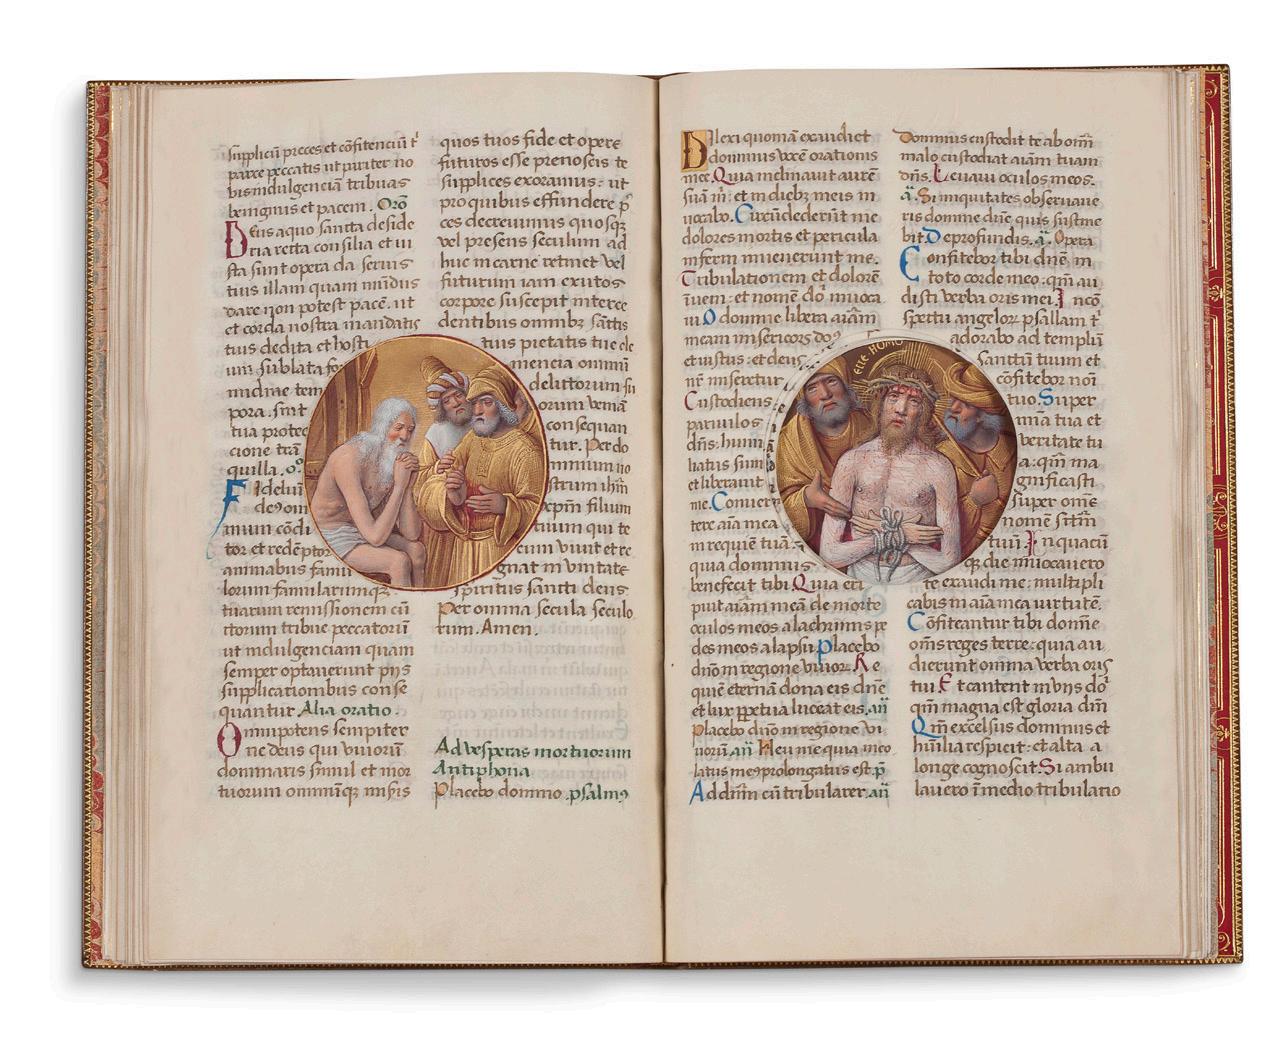 suppliciū preces et cōfitenciū t'
parce peccatis ut pariter no
bis indulgenciā tribuas
benignus et pacem. Orō
Deus a quo sancta deside
ria recta consilia et iu
sta sunt opera da seruis
tuis illam quam mūdus
dare non potest pacē. ut
et corda nostra mandatis
tuis dedita et hosti
um sublata for
midine tem
pora. sint
tua protec
cione trā
quilla. oº
Fidelium
deº om
nium cōdi
tor et redēptor
animabus famu
lorum famularumqꝫ
tuarum remissionem cū
ctorum tribue peccatorū
ut indulgenciam quam
semper optauerunt piis
supplicationibus conse
quantur. Alia oratio.
Omnipotens sempiter
ne deus qui viuorū
dominaris simul et mor
tuorum omniūqꝫ misis
quos tuos fide et opere
futuros esse prenoscis te
supplices exoramus: ut
pro quibus effundere p̄
ces decreuimus quosqꝫ
vel presens seculum ad
huc in carne retinet vel
futurum iam exutos
corpore suscepit interce
dentibus omnibꝫ sāctis
tuis pietatis tue cle
mencia omniū
delictorum su
orum veniā
consequan
tur. Per do
minium no
strum ihm̄
xp̄m filium
tuum qui te
cum viuit et re
gnat in vnitate
spiritus sancti deus.
Per omnia secula seculo
rum. Amen.
Ad vesperas mortuorum
Antiphona
Placebo domino. psalmꝰ
Dilexi quoniā exaudiet
dominus vocē orationis
mee. Quia inclinauit aurē
suā m̄: et in diebꝫ meis in
uocabo. Circūdederūt me
dolores mortis et pericula
inferni inuenerunt me.
Tribulationem et dolorē
īueni: et nomē dn̄i īuoca
ui. O domine libera aīam
meam misericors do꜀
et iustus: et deus
nr̄ miseretur
Custodiens
paruulos
dn̄s: humi
liatus sum
et liberauit
me. Conuer
tere aīa mea
in requiē tuā:
quia dominus
benefecit tibi. Quia eri
puit aīam meā de morte
oculos meos a lachrimis pe
des meos a lapsu. Placebo
dn̄o in regione viuor. Re
quiē eternā dona eis dn̄e
et lux ꝑpetua luceat eis. añ
Placebo dn̄o in regione vi
uorū. añ Heu me quia inco
latus meꝰ prolongatus est. p̄
Ad dn̄m cū tribularer. añ
ECCE HOMO
Dominus custodit te ab om̄i
malo custodiat aīam tuam
dn̄s. Leuaui oculos meos.
ā. Si iniquitates obseruaue
ris domine dn̄e quis sustine
bit. De profundis. ā. Opera
Confitebor tibi dn̄e in
toto corde meo: qm̄ au
disti verba oris mei. In cō
spectu angelor psallam t'
adorabo ad templū
sanctū tuum et
cōfitebor noī
tuo. Super
mīa tua et
veritate tu
a: qm̄ ma
gnificasti
super om̄e
nomē sctm̄
tuū. In quacū
qꝫ die inuocauero
te exaudi me: multipli
cabis in aīa mea virtutē.
Cōfiteantur tibi domīe
om̄s reges terre: quia au
dierunt omnia verba oris
tui. Et cantent in viis dn̄i
qm̄ magna est gloria dn̄i
Qm̄ excelsus dominus et
hūilia respicit: et alta a
longe cognoscit. Si ambu
lauero ī medio tribulatio